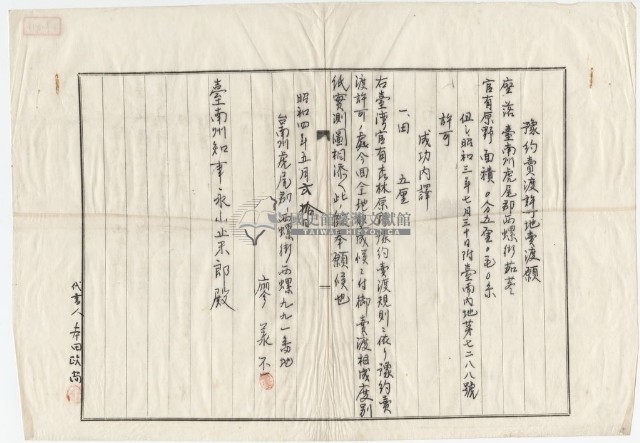 豫約賣渡許可地賣渡願
座落 臺南州虎尾郡西螺街茄苳
官有原野 面積 〇分五厘〇毛〇糸
但シ昭和三年七月三十日附臺南內地第七二八八號
許可
成功內譯
一、田 五厘
右臺湾官有森林原野豫約賣渡規則ニ依リ豫約賣
渡許可ノ處今回全地成功候ニ付御賣渡相成度別
紙實測圖相添ヘ此段奉願候也
昭和四年五月貳拾日
台南州虎尾郡西螺街西螺九九一番地
廖 不一
臺南州知事永山止米郎殿
代書人 本田
國史館臺灣文獻館
TAIWAN HISTORICA